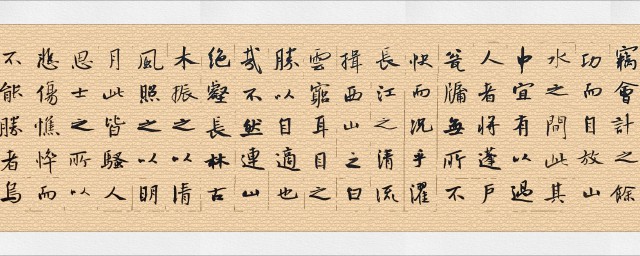 竊會計之餘
功而自放山
水之間此其
中宜有以過
人者將蓬戶
瓮牖無所不
快而況乎濯
長江之清流
揖西山之白
雲窮耳目之
勝以自適也
哉不然連山
絕壑長林古
木振之以清
風照之以明
月此皆騷人
思士之所以
悲傷憔悴而
不能勝者烏